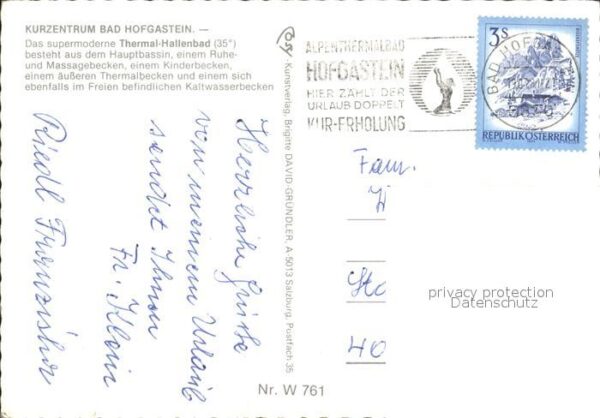 KURZENTRUM BAD HOFGASTEIN. —
Das supermoderne Thermal-Hallenbad (35°)
besteht aus dem Hauptbassin, einem Ruhe-
und Massagebecken, einem Kinderbecken,
einem äußeren Thermalbecken und einem sich
ebenfalls im Freien befindlichen Kaltwasserbecken
Herzliche Grüße
von meinem Urlaub
sendet Ihnen
Fr.
Riedl Franziska
Kunstverlag, Brigitte DAVID-GRÜNDLER, A 5013 Salzburg, Postfach 35
Nr. W 761
ALPENTHERMALBAD
HOFGASTEIN
HIER ZÄHLT DER
URLAUB DOPPELT
KUR-ERHOLUNG
BAD HOFGASTEIN
3s
REPUBLIK ÖSTERREICH
Fam.
40
privacy protection
Datenschutz